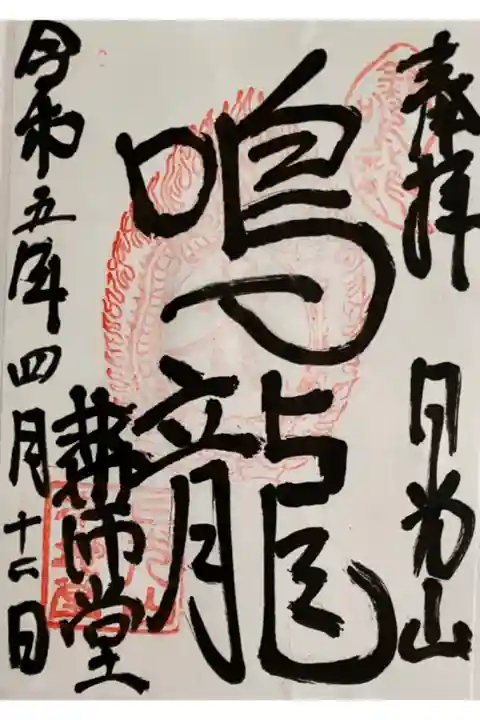 奉拝 日光山
鳴龍
薬師堂
令和五年四月十六日